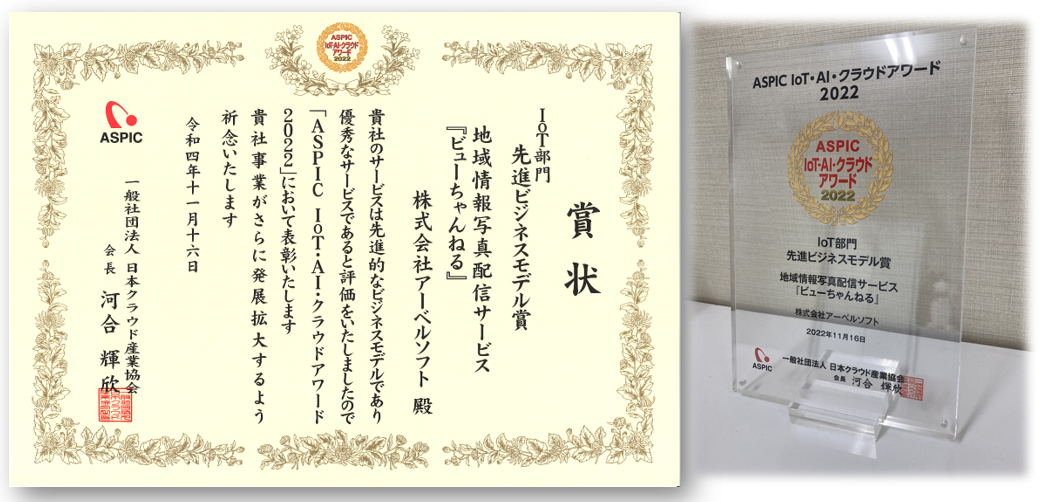 ASPIC
IoT・AI・クラウド
アワード
2022
賞状
IoT部門
先進ビジネスモデル賞
地域情報写真配信サービス
『ビューちゃんねる』
株式会社アーベルソフト 殿
貴社のサービスは先進的なビジネスモデルであり
優秀なサービスであると評価をいたしましたので
「ASPIC IoT・AI・クラウドアワード
2022」において表彰いたします
貴社事業がさらに発展拡大するよう
祈念いたします
令和四年十一月十六日
一般社団法人 日本クラウド産業協会
会長 河合 輝欣
ASPIC
ASPIC IoT・AI・クラウドアワード
2022
ASPIC
IoT・AI・クラウド
アワード
2022
IoT部門
先進ビジネスモデル賞
地域情報写真配信サービス
『ビューちゃんねる』
株式会社アーベルソフト
2022年11月16日
ASPIC
一般社団法人 日本クラウド産業協会
会長 河合 輝欣